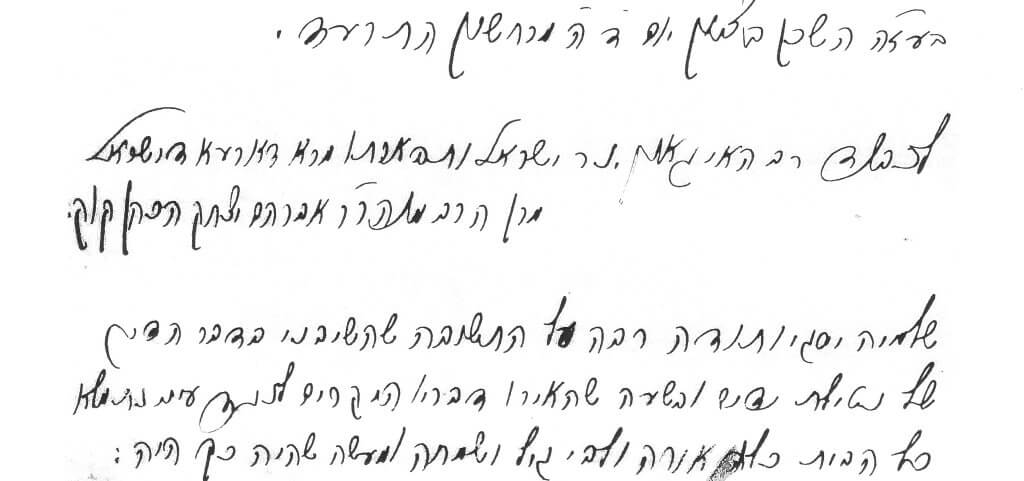 בעזה השכן בציון יום ד' ה' מרחשון התרעד.
לכבוד רב האי גאון, נר ישראל ותפארתו מרא דארעא דישראל
מרן הרב מוהר"ר אברהם יצחק הכהן קוק.
שלמיה יסגי ותודה רבה על התשובה שהשיבני בדבר הדין
של נטילת ידים ובשעה שהאירו דבריו היקרים לנגד עיני נתמלא
כל הבית כלו אורה ולבי גיל ושמחה ומעשה שהיה כך היה: